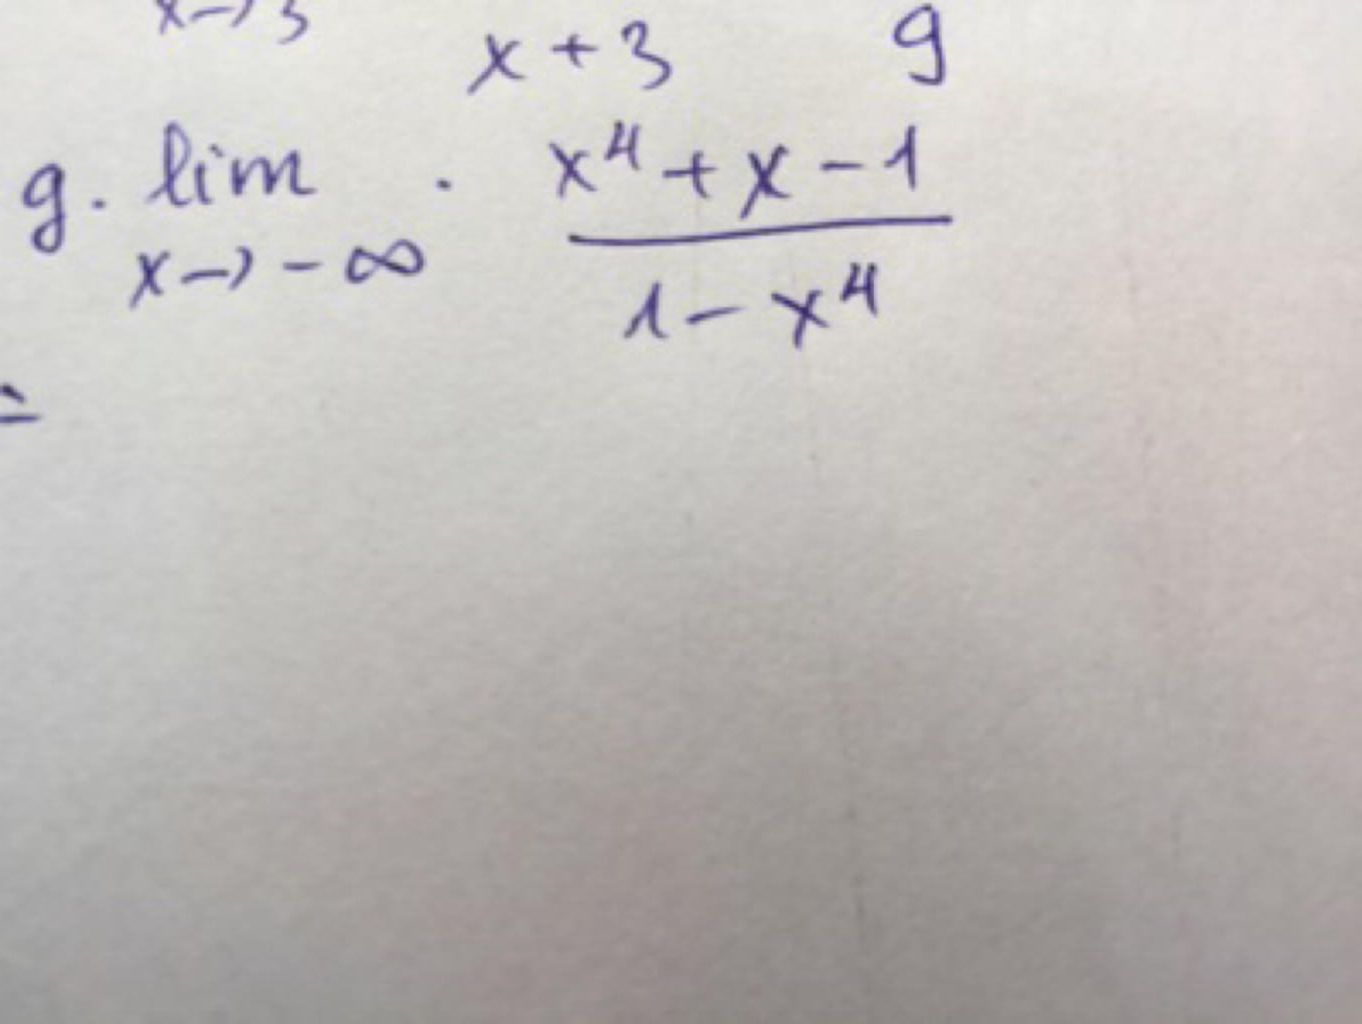 x→3
x + 3 9
g. lim . x⁴ + x - 1
x→ - ∞ 1 - x⁴
=